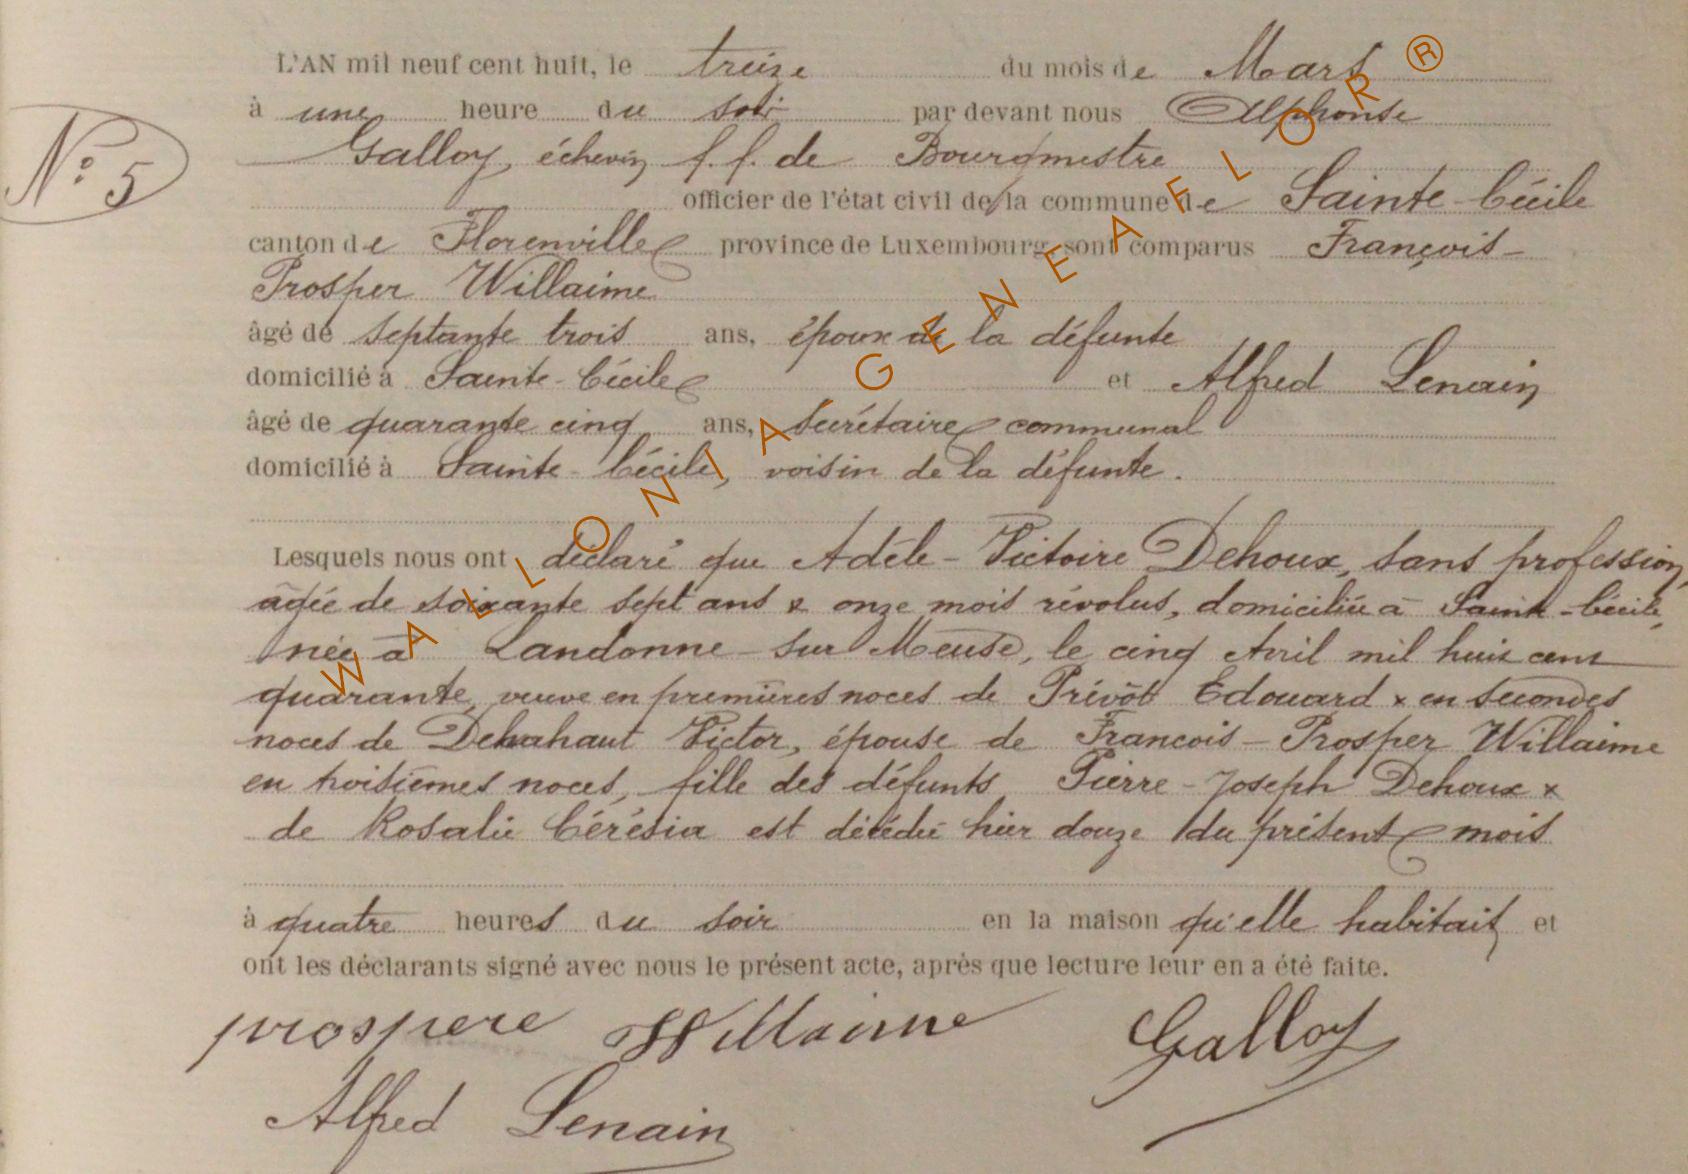 L'AN mil neuf cent huit, le treize du mois de Mars
à une heure du soir par devant nous Alphonse
N° 5
Galloy, échevin f. f. de Bourgmestre
officier de l'état civil de la commune de Sainte-Cécile
canton de Florenville province de Luxembourg, sont comparus François-
Prosper Willaime
âgé de septante trois ans, époux de la défunte
domicilié à Sainte-Cécile et Alfred Lenain
âgé de quarante cinq ans, secrétaire communal
domicilié à Sainte-Cécile, voisin de la défunte.
Lesquels nous ont déclaré que Adèle-Victoire Dehoux, sans profession,
agée de soixante sept ans & onze mois révolus, domiciliée à Sainte-Cécile,
née à Landonne-sur Meuse, le cinq Avril mil huit cent
quarante, veuve en premières noces de Prévôt Edouard & en secondes
noces de Dehahaut Victor, épouse de Francois-Prosper Willaime
en troisièmes noces, fille des défunts Pierre-Joseph Dehoux &
de Rosalie Cérésia est décédée hier douze du présent mois
à quatre heures du soir en la maison qu'elle habitait et
ont les déclarants signé avec nous le présent acte, après que lecture leur en a été faite.
prospere Willaime Galloy
Alfred Lenain
WALLONIA GENEAFLOR ®